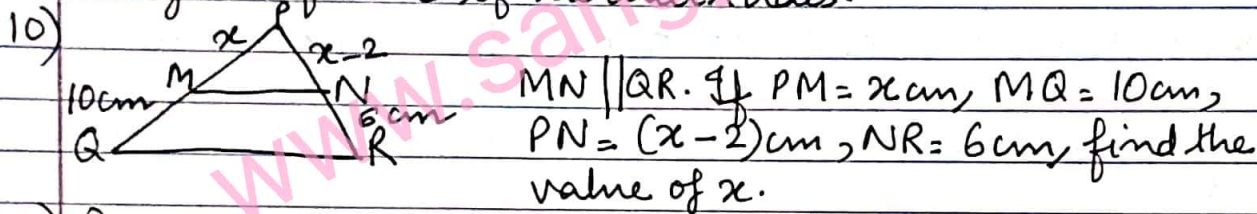 10)
P
x
x-2
M
N
10cm
6 cm
Q
R
MN || QR. If PM = x cm, MQ = 10cm,
PN = (x-2)cm, NR = 6cm, find the
value of x.
www.sang